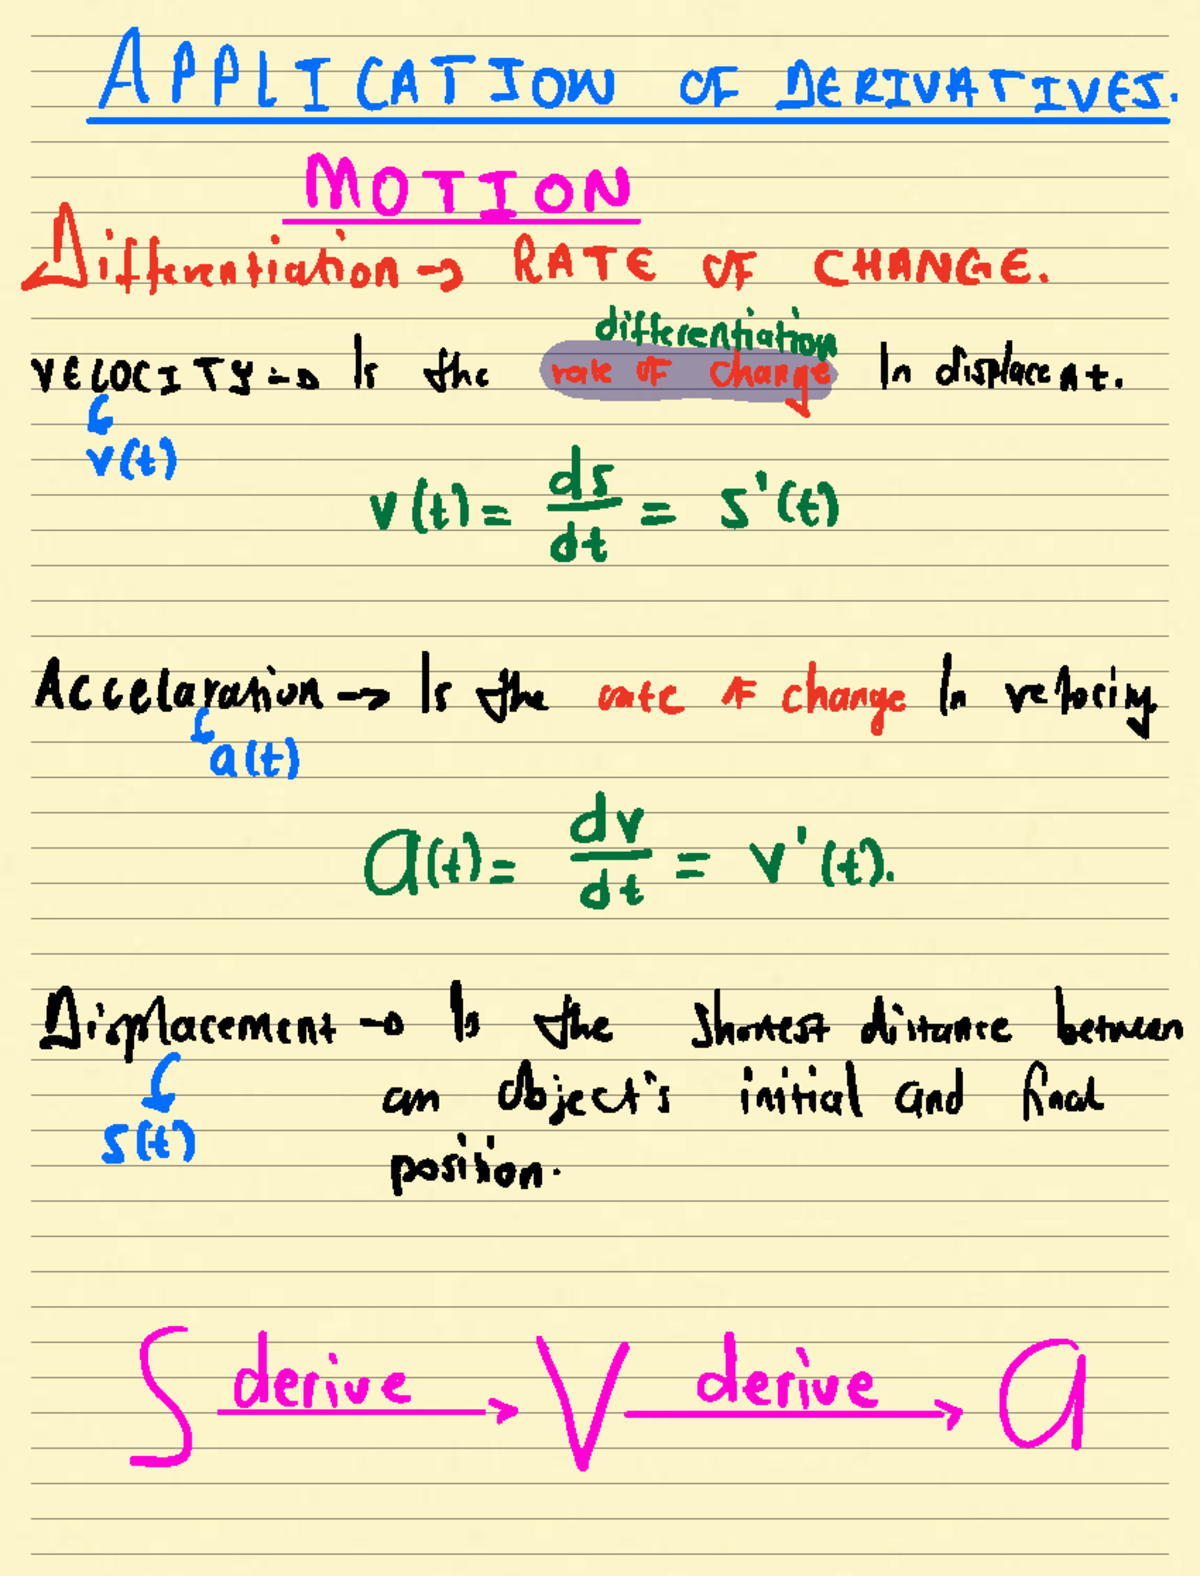 APPLICATION OF DERIVATIVES.
MOTION
Differentiation → RATE OF CHANGE.
differentiation
VELOCITY → Is the rate of change In displacent.
v(t)
v(t) = ds/dt = s'(t)
Accelaration → Is the rate of change In velocity
a(t)
a(t) = dv/dt = v'(t).
Displacement → Is the shortest distance between
s(t)
an object's initial and final
position.
S derive → V derive → a